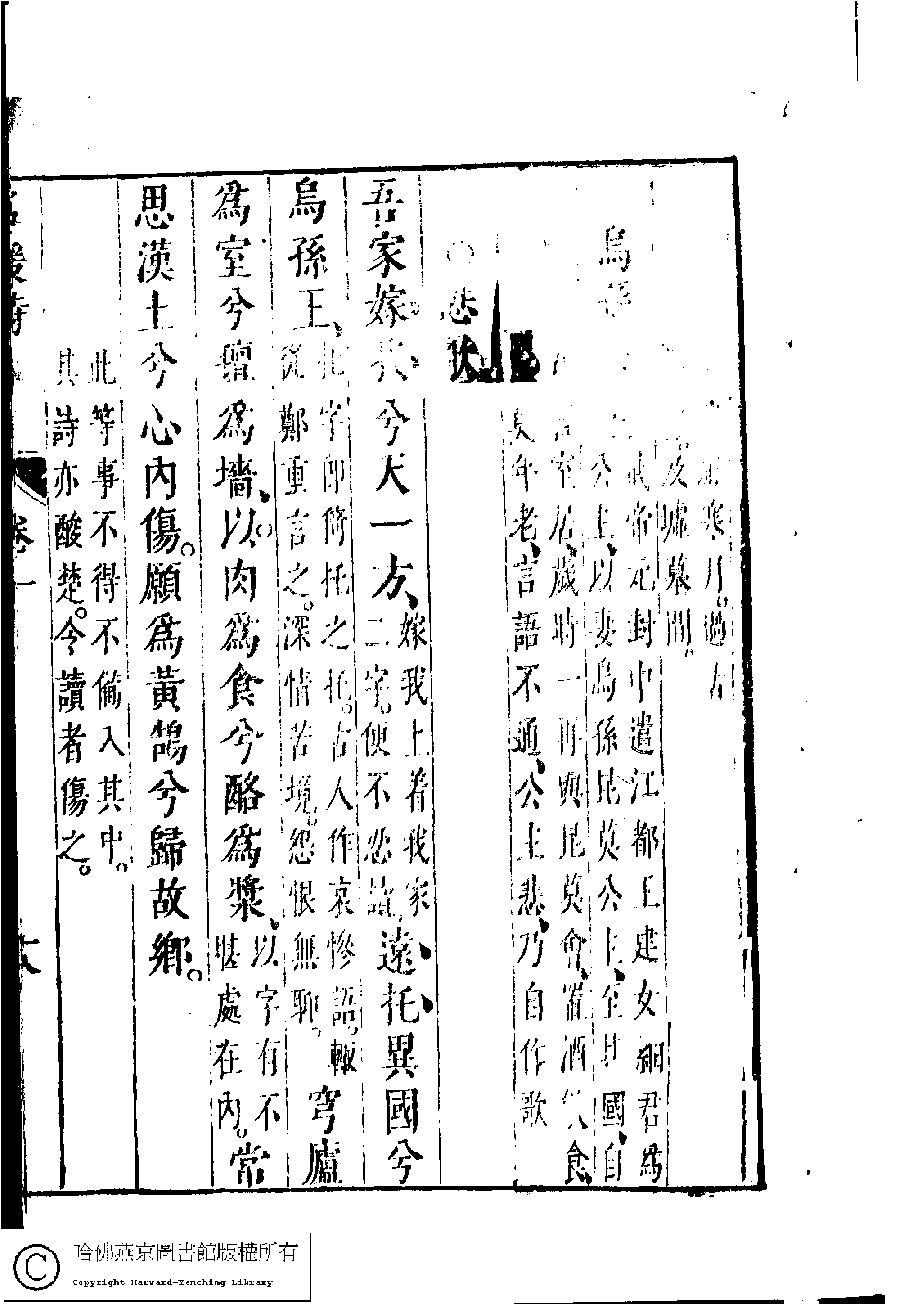 寒月。過古
及墟墓間。
烏孫
武帝元封中遣江都王建女細君爲
公主、以妻烏孫昆莫公主、至其國、自
室居、歲時一再與昆莫會、置酒飲食、
年老、言語不通、公主悲、乃自作歌
悲歌
吾家嫁我兮天一方、嫁我上着我家二字。便不悲。故遠托異國兮
烏孫王、托字卽脩托之托。古人作哀慘語。輙從鄭重言之。深情苦境。怨恨無聊。穹廬
爲室兮氊爲墻、以肉爲食兮酪爲漿、以字有不堪處在內。常
思漢土兮心內傷。願爲黃鵠兮歸故鄉。
此等事不得不偹入其中。
其詩亦酸楚。令讀者傷之。
名媛詩
卷一
六
哈佛燕京圖書館版權所有
Copyright Harvard-Yenching Library